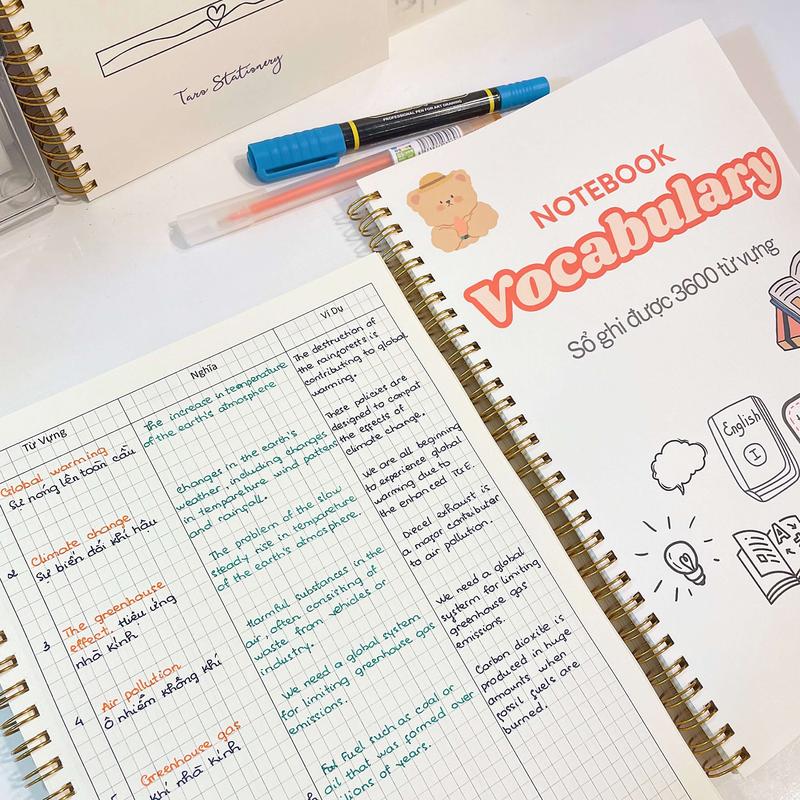 Taro Stationery
PROFESSIONAL PEN FOR ART DRAWING
NOTEBOOK
Vocabulary
Sổ ghi được 3600 từ vựng
English
I
A
Từ Vựng
Nghĩa
Ví Dụ
Global warming
Sự nóng lên toàn cầu
The increase in temperature
of the earth's atmosphere
The destruction of
the rainforests is
contributing to global
warming.
2
Climate change
Sự biến đổi khí hậu
changes in the earth's
weather, including changes
in tempareture wind pattens
and rainfall.
These policies are
designed to compat
the effects of
climate change.
3
The greenhouse
effect. Hiệu ứng
nhà kính
The problem of the slow
steady rise in tempareture
of the earth's atmosphere.
We are all beginning
to experience global
warming due to
the enhanced
4
Air pollution
Ô nhiễm không khí
Harmful substances in the
air, often consisting of
waste from vehicles or
industry.
Diecel exhaust is
a major contributor
to air pollution.
Greenhouse gas
khí nhà kính
We need a global system
for limiting greenhouse gas
emissions.
We need a global
systerm for limiting
greenhouse gas
emissions.
Fuel such as coal or
oil that was formed over
of years.
Carbon dioxide is
produced in huge
amounts when
fossil fuels are
burned.